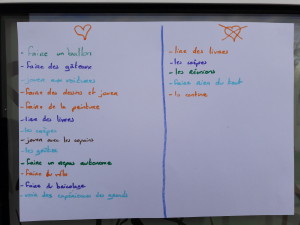 - Faire un bulletin
- faire des gâteaux
- jouer aux voitures
- faire des dessins et jouer
- faire de la peinture
- lire des livres
- les vêpres
- jouer avec les copains
- les goûters
- faire un repas autonome
- faire du vélo
- faire du bricolage
- voir des expériences des grands
- lire des livres
- les vêpres
- les réunions
- faire rien du tout
- la cantine